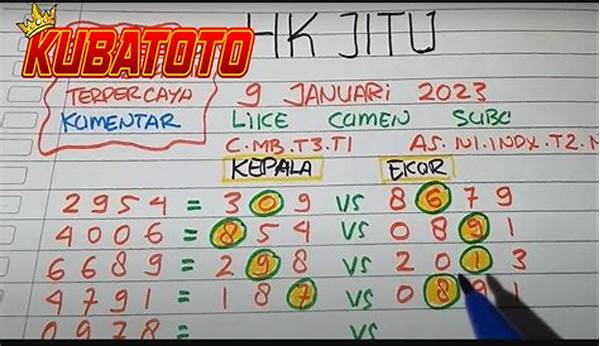 KUBATOTO
HK JITU
TERPERCAYA 9 JANUARI 2023
KOMENTAR LIKE COMEN SUBC
C.MB.T3.T1 AS.N1.INDX.T2.N
KEPALA EKOR
2954 = 309 VS 8679
4006 = 854 VS 0891
6689 = 298 VS 2013
4791 = 187 VS 0891
0978 = VS